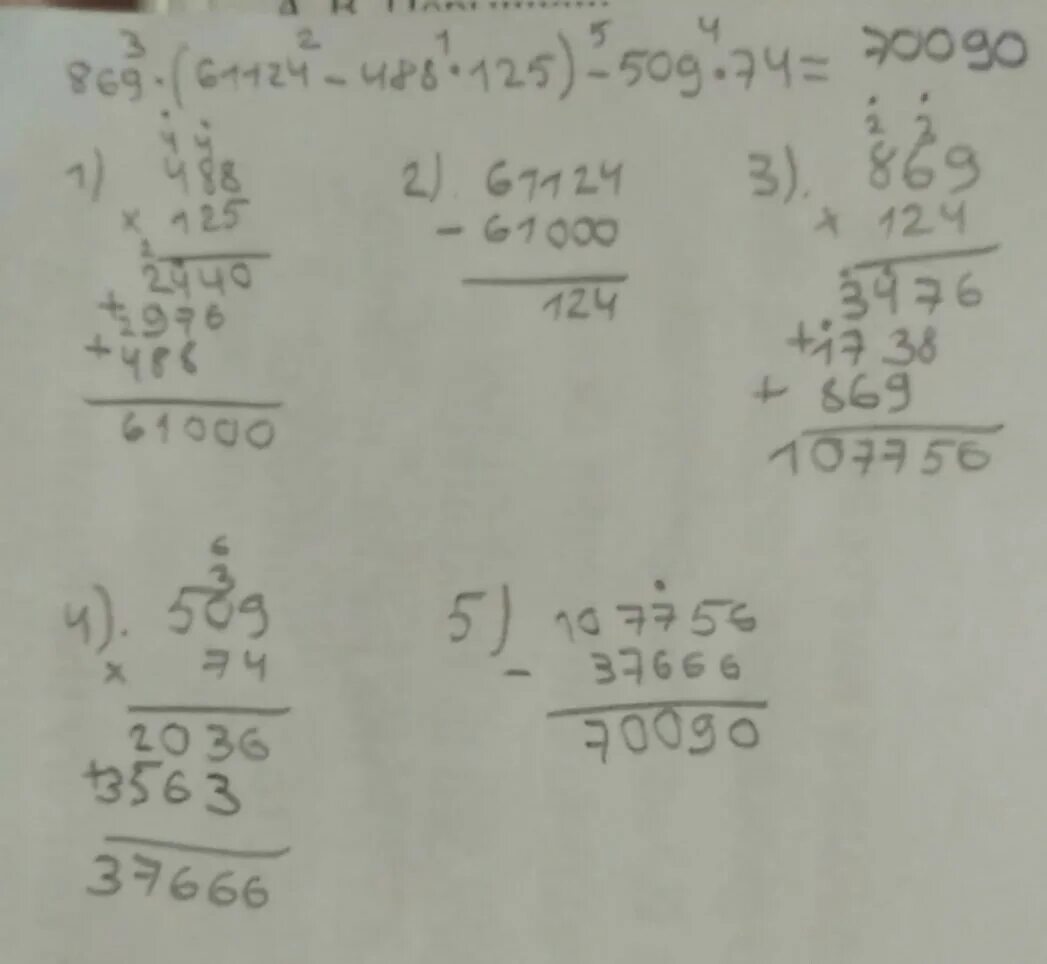 3 2 1 5 4
869·(61124-488·125)-509·74= 70090
1)
4 4
488
× 125
2
2440
+2976
+488
61000
2). 61124
- 61000
124
3).
2 2
869
× 124
3476
+1738
+ 869
107756
4).
6
3
509
× 74
2036
+3563
37666
5) 107756
- 37666
70090